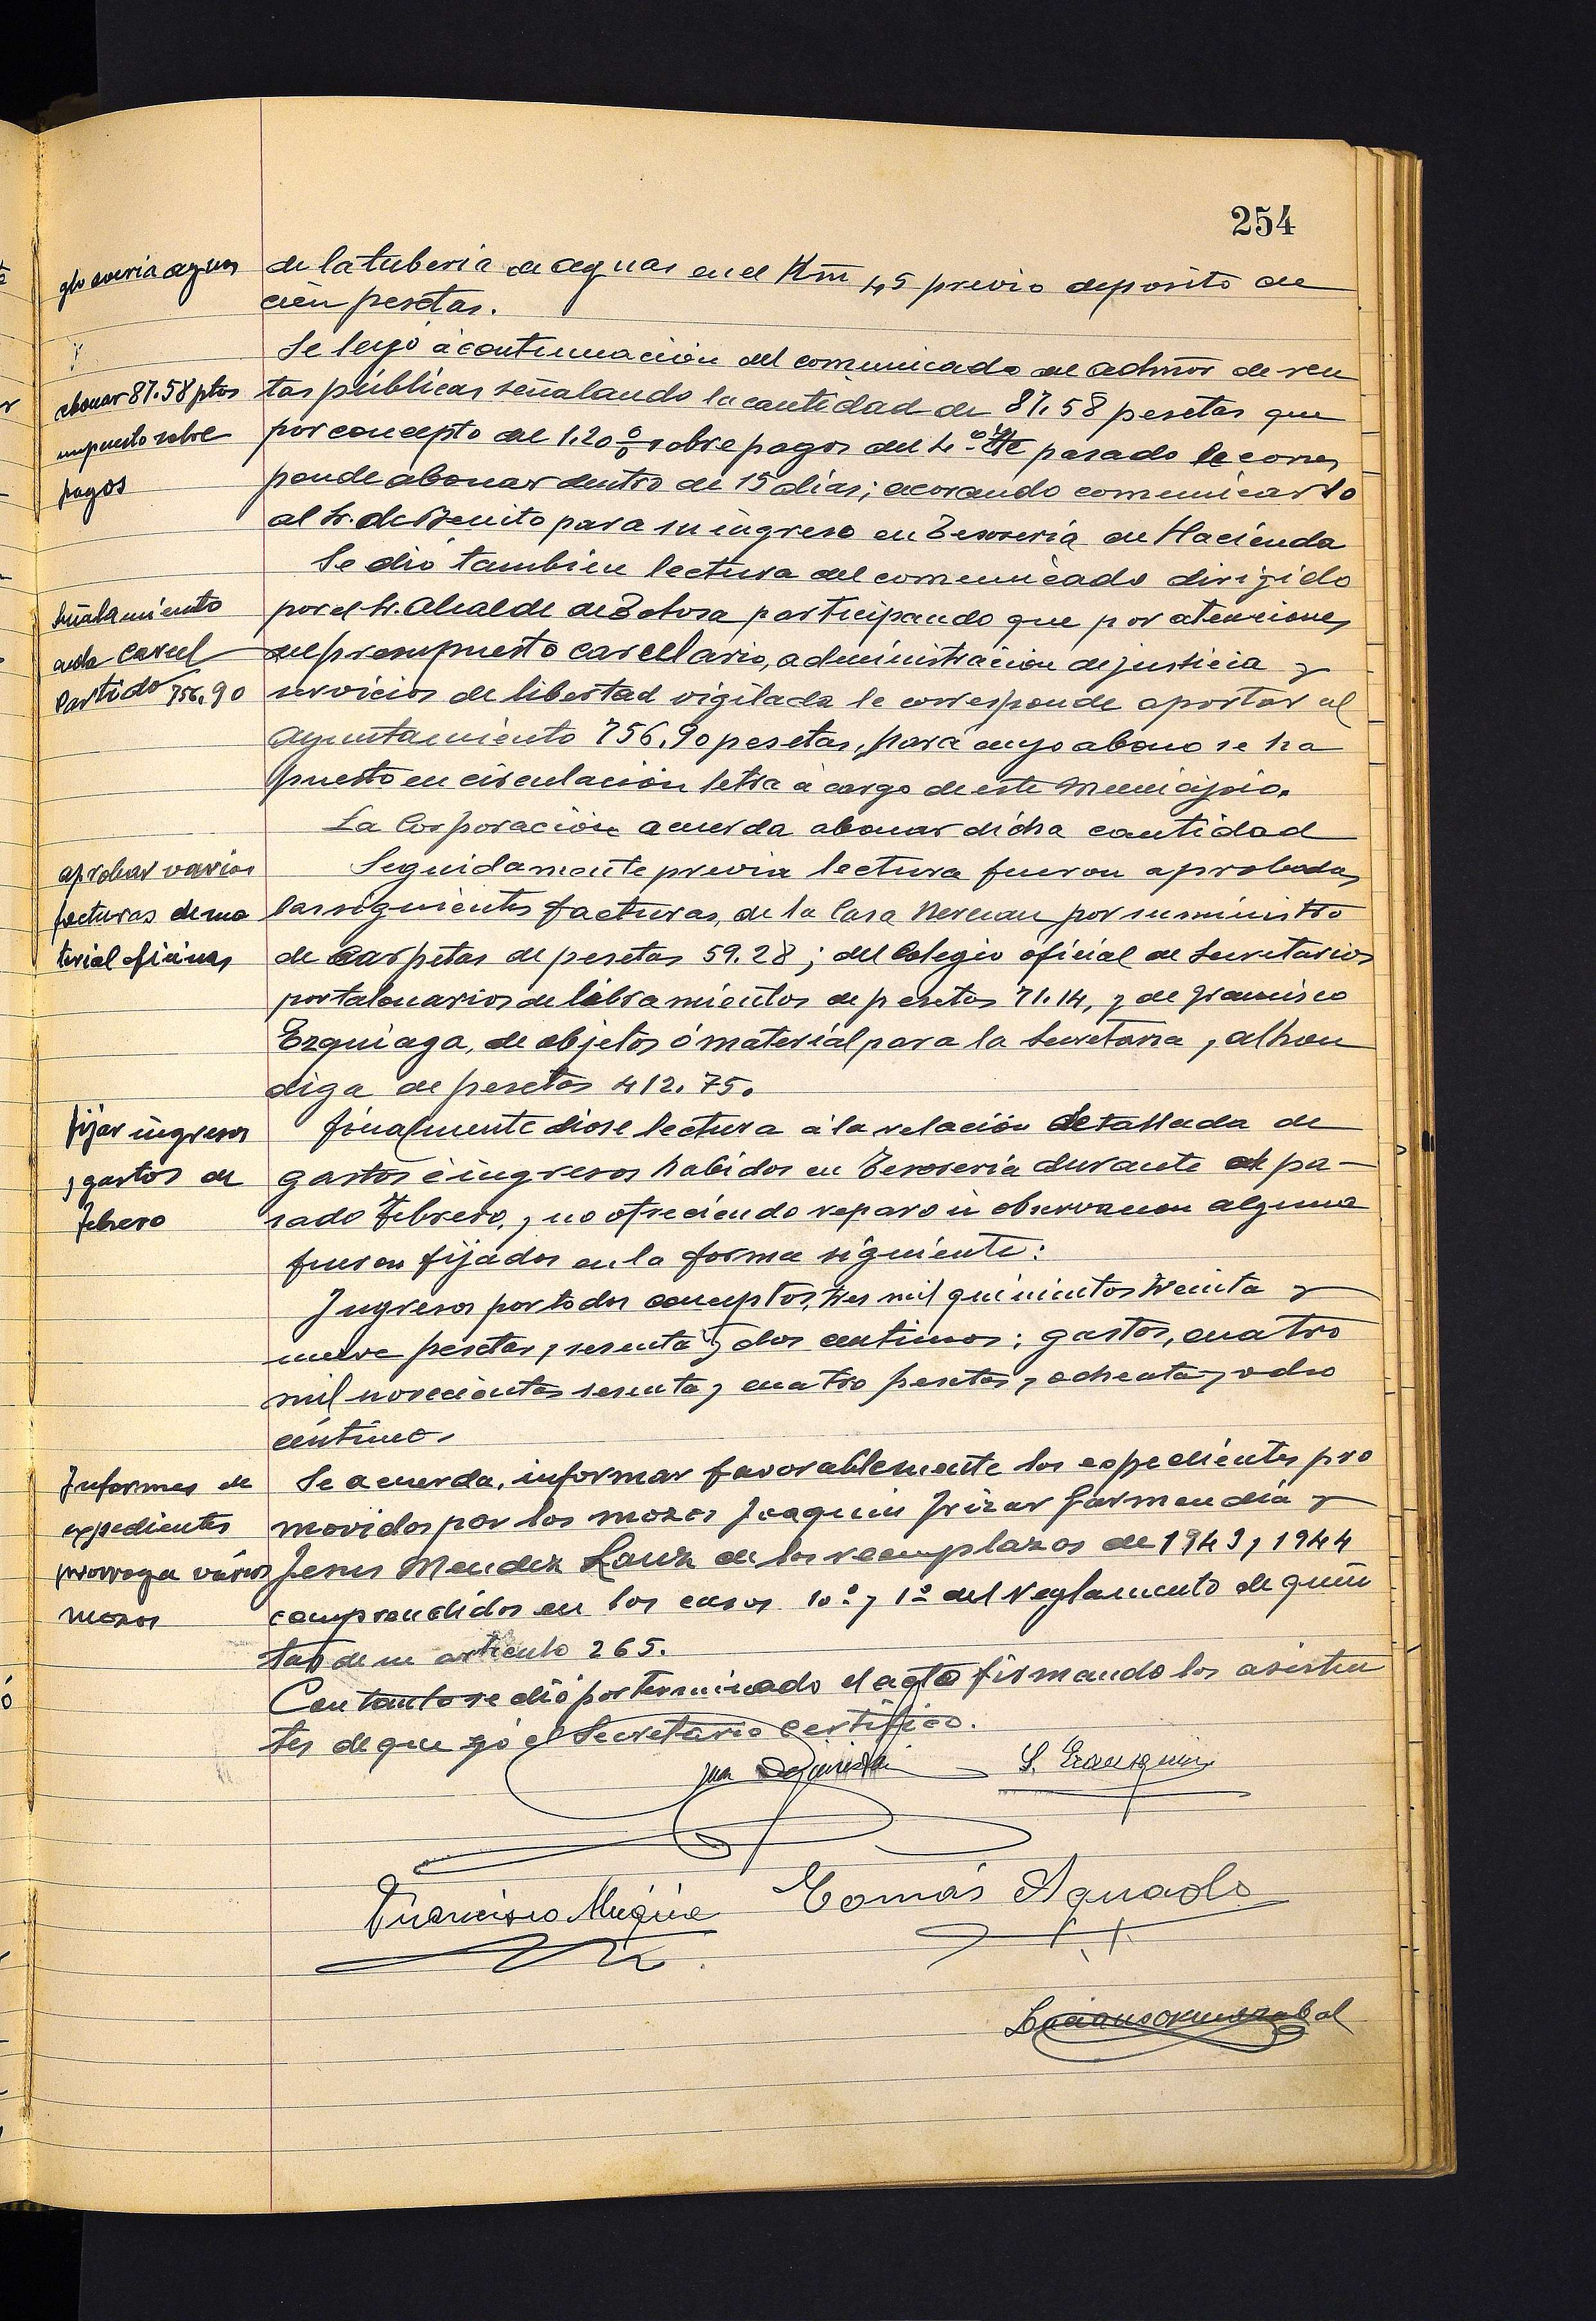 254
averia aguas
de la tuberia de aguas en el Km 45 previo deposito de
cien pesetas.
Se leyó á continuación del comunicado de admor de ren
abonar 87.58 ptas
tas públicas señalando la cantidad de 87.58 pesetas que
impuesto sobre
por concepto del 1.20 % sobre pagos del 4º pasado le corres
pagos
ponde abonar dentro de 15 dias; acorando comunicarlo
al Sr. de Benito para su ingreso en Tesoreria de Hacienda
Se dió tambien lectura del comunicado dirigido
Señalamiento
por el Sr. Alcalde de Tolosa participando que por atenciones
Carcel
del presupuesto carcelario, administración de justicia y
Partido 756.90
servicios de libertad vigilada le corresponde aportar al
Ayuntamiento 756.90 pesetas, para cuyo abono se ha
puesto en circulación letra á cargo de este Municipio.
La Corporación acuerda abonar dicha cantidad
aprobar varias
Seguidamente previa lectura fueron aprobadas
facturas de ma
las siguientes facturas, de la Casa por suministro
terial oficinas
de carpetas de pesetas 59.28; del Colegio oficial de Secretarios
por talonarios de libramientos de pesetas 71.14, y de Francisco
Ezquiaga, de objetos ó material para la Secretaria, alhon
diga de pesetas 412.75.
fijar ingresos
finalmente diose lectura á la relación detallada de
y gastos de
gastos é ingresos habidos en Tesoreria durante el pa-
febrero
sado febrero, y no ofreciendo reparo ni observacion alguna
fueron fijados en la forma siguiente:
Ingresos por todos conceptos, tres mil quinientos treinta y
nueve pesetas y sesenta y dos centimos; gastos, cuatro
mil novecientas sesenta y cuatro pesetas y ochenta y ocho
céntimos.
Informes de
Se acuerda, informar favorablemente los expedientes pro
expedientes
movidos por los mozos Joaquin Irizar Garmendia y
prorroga varios
Jesus Mendez de los reemplazos de 1943 y 1944
mozos
comprendidos en los casos 10º y 1º del reglamento de quin
tas de su articulo 265.
Con tanto se dió por terminado el acto firmando los asisten
tes de que yó el Secretario certifico.
Francisco Múgica Tomás Aguado